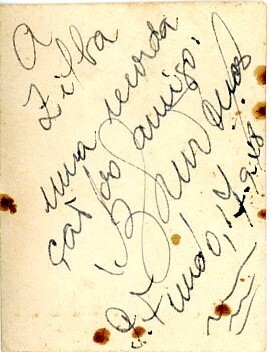 A
Zilba
uma recorda
ção do amigo,
P. Fundo, 17-9-48